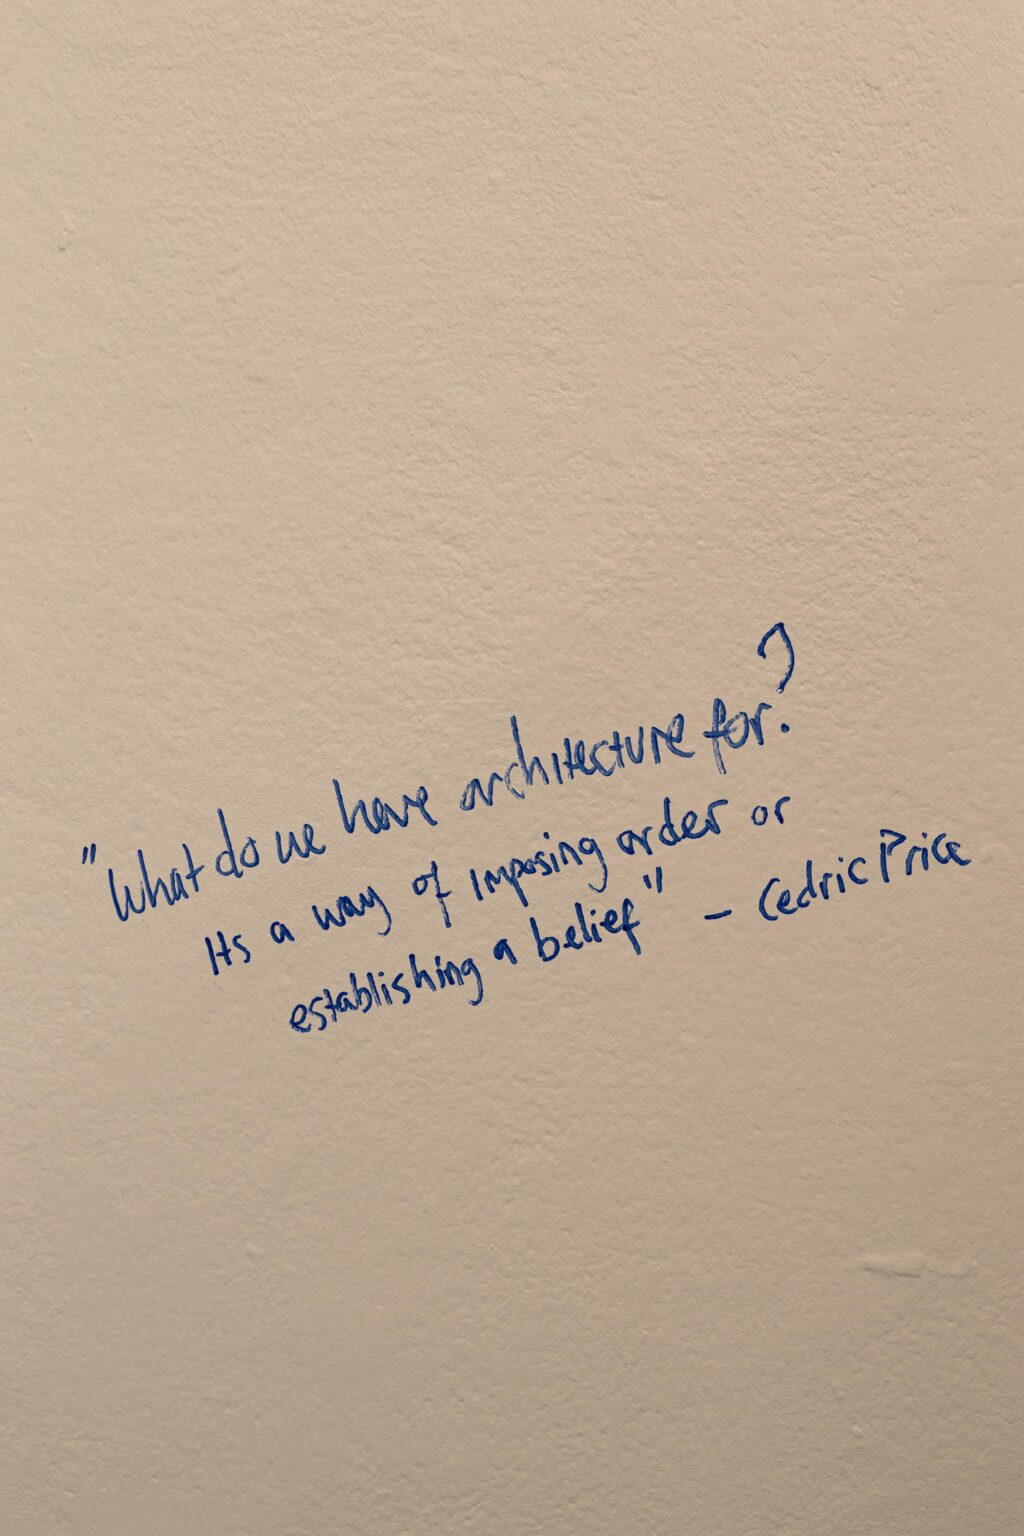 "What do we have architecture for?
Its a way of imposing order or
establishing a belief" – Cedric Price